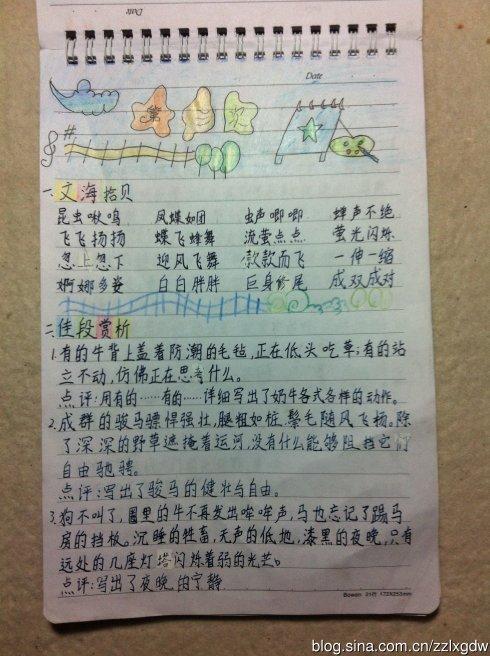 Date
Date
第
记
一、文海拾贝
昆虫啾鸣 凤蝶如团 虫声唧唧 蝉声不绝
飞飞扬扬 蝶飞蜂舞 流萤点点 萤光闪烁
忽上忽下 迎风飞舞 款款而飞 一伸一缩
婀娜多姿 白白胖胖 巨身修尾 成双成对
二、佳段赏析
1.有的牛背上盖着防潮的毛毡,正在低头吃草;有的站
立不动,仿佛正在思考什么。
点评:用有的……有的……详细写出了奶牛各式各样的动作。
2.成群的骏马骠悍强壮,腿粗如桩,鬃毛随风飞扬。除
了深深的野草遮掩着运河,没有什么能够阻挡它们
自由驰骋。
点评:写出了骏马的健壮与自由。
3.狗不叫了,圈里的牛不再发出哞哞声,马也忘记了踢马
房的挡板。沉睡的牲畜,无声的低地,漆黑的夜晚,只有
远处的几座灯塔闪烁着弱的光芒。
点评:写出了夜晚的宁静
Bowen 21行 172X253mm
blog.sina.com.cn/zzlxgdw